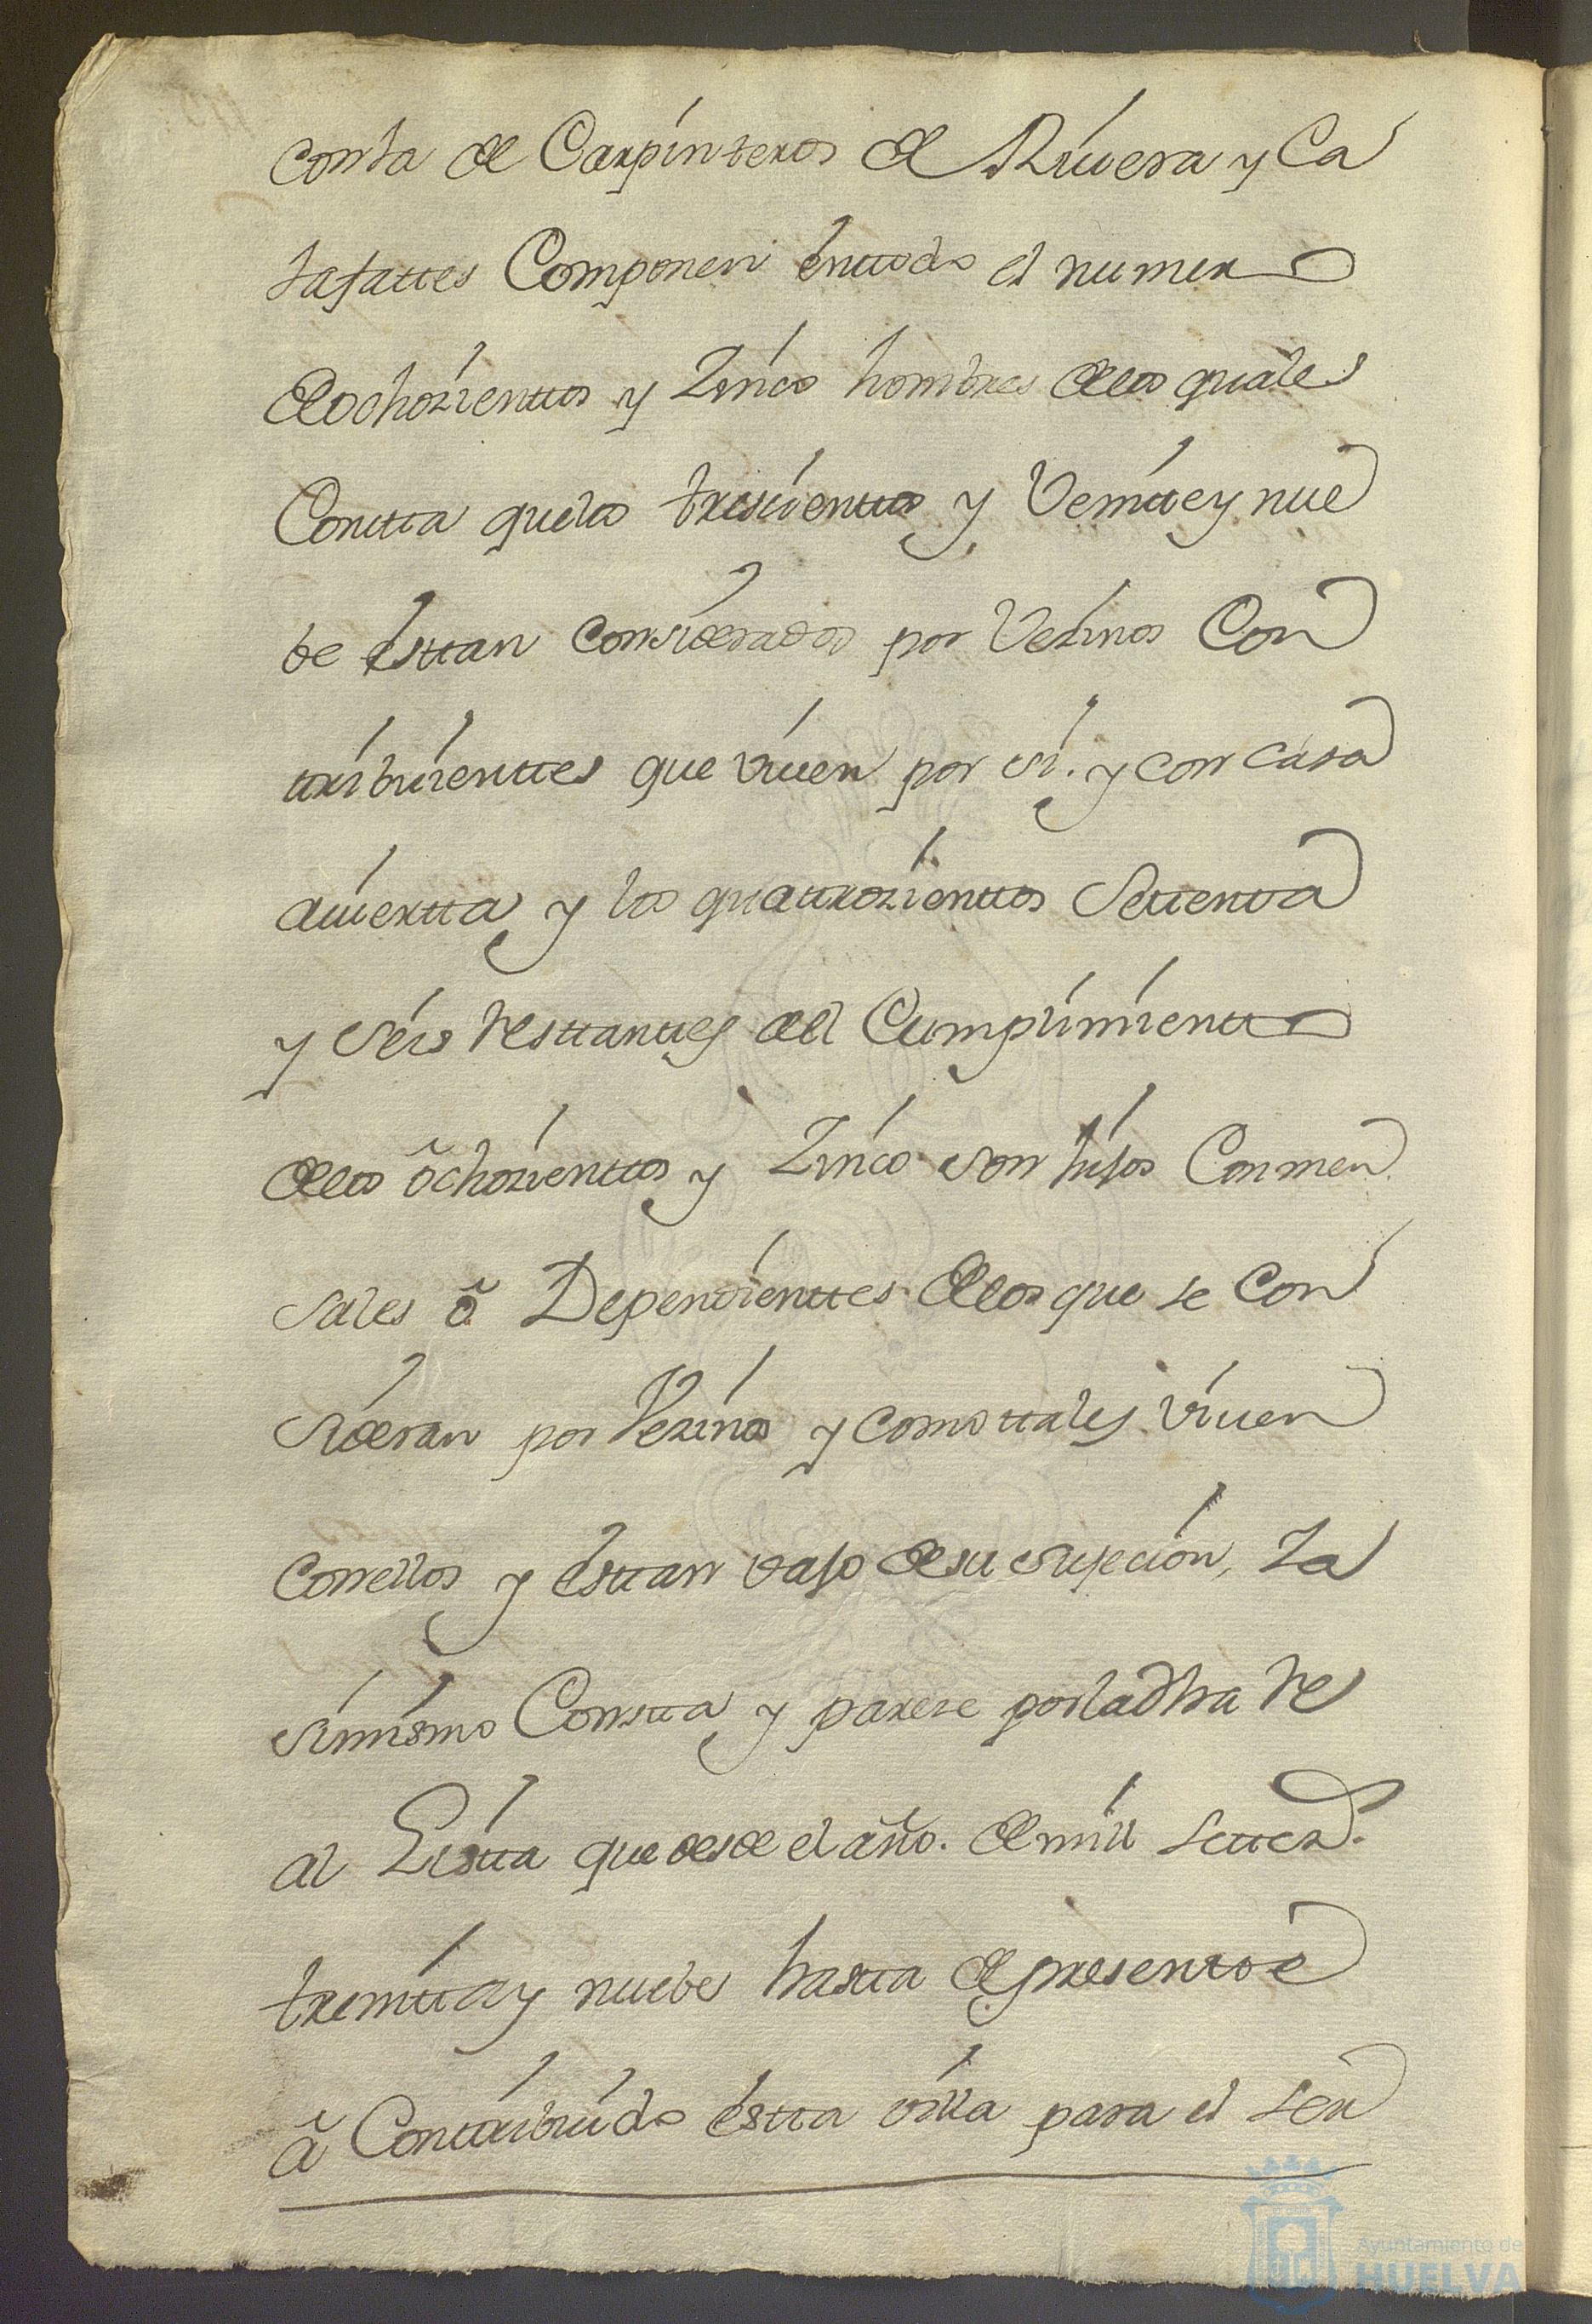 con la de Carpinteros de Rivera y Ca
lafattes Componen enttodo el numero
deochozienttos y Zinco hombres delos quales
Contta quelos tresçienttos y Veintte y nue
be esttan considerados por Vezinos Con
ttribuienttes que viuen por si. y con casa
auiertta, y los quattrozienttos Settenta
y seis resttanttes del Cumplimientto
delos õchozienttos y Zinco son hijos Conmen
sales õ Dependienttes delos que se Con
sideran por Vezinos y como ttales viuen
con ellos y esttan vajo de su sujecion, Za
simismo Constta, y pareze por la dha re
al Listta que desde el año. de mill settez.s
treintta y nuebe hastta el presente
ã Conttribuido estta villa para el ser
Ayuntamiento de
HUELVA